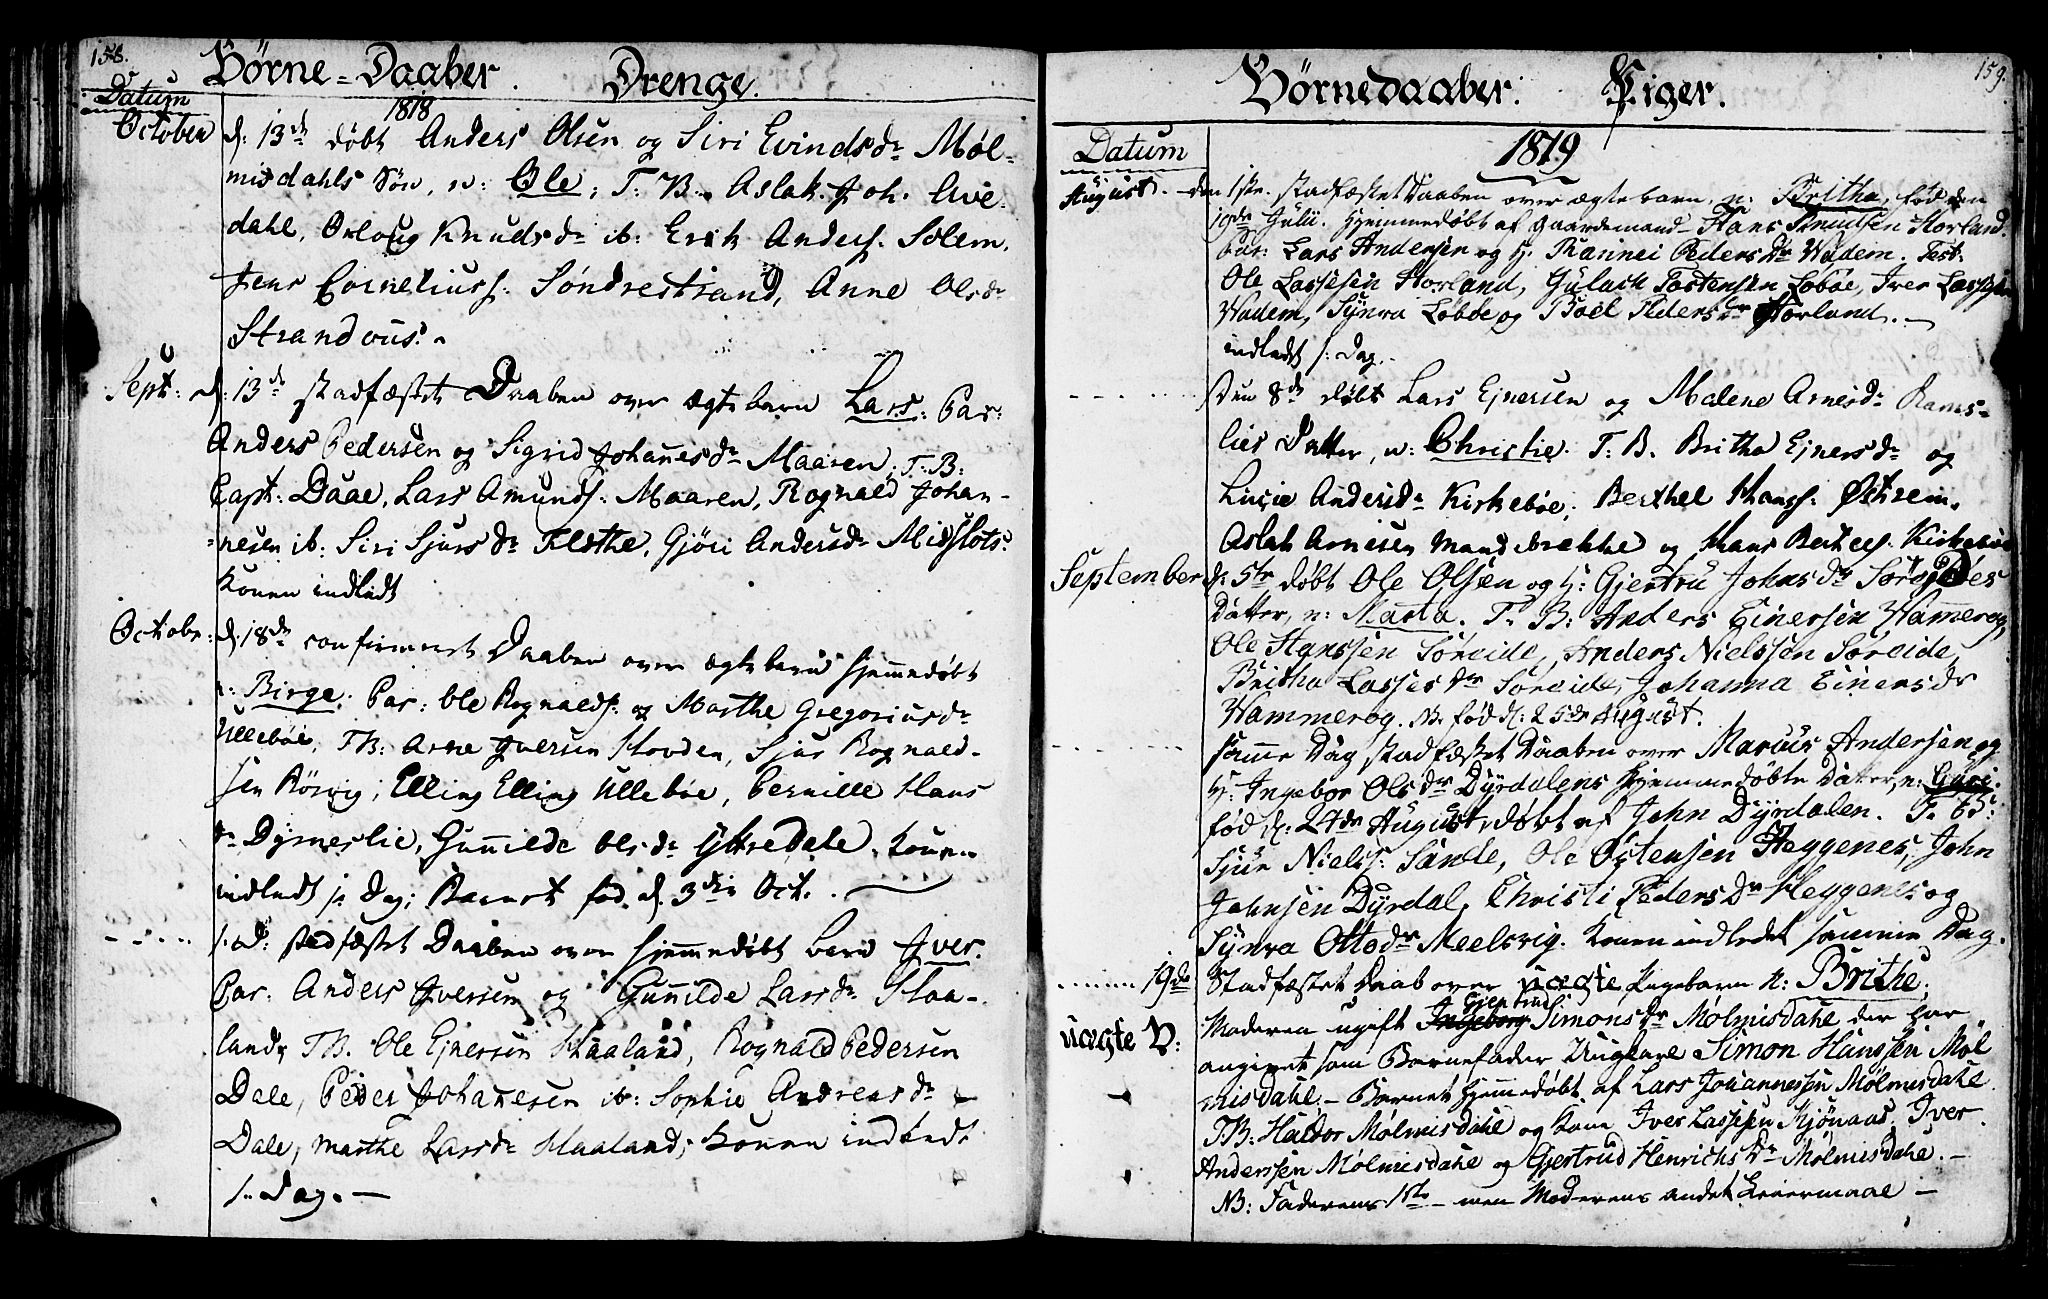 158.
Börne-Daaber. Drenge.
Datum
1818
October d: 13de döbt Anders Olsen og Siri Evindsdr Möl-
misdahls Sön, n: Ole; T. B. Aslak Joh. Ave-
dahl, Orloug Knudsdr ib: Erik Anders. Solem,
Jens Corneliuss. Söndrestrand, Anne Olsdr
Strand ous:
Sept: d: 13de stadfæstet Daaben over ægte barn Lars: Par:
Anders Pedersen og Sigrid Johañesdr Maaren; T. B:
Capt: Daae, Lars Amunds: Maaren, Rognald Johan-
nesen ib: Siri Sjursdr Flethe, Gjöri Andersdr Midslots:
Konen indledt
Octobr: d: 18de confirmeret Daaben over ægte barn hjemmedöbt
n: Birge: Par: Ole Rognalds: og Marthe Gregoriusdr
Ulleböe, TB: Arne Iversen Hovden, Sjur Rognald-
sen Rörvig, Elling Elling Ulleböe, Pernille Hans
dr Dyrneslie, Guñilde Olsdr Yttredale. Konen
indledt s: Dag; Barnet föd. d. 3die Oct.
s: D: stadfæstet Daaben over hjemmedöbt barn Iver.
Par: Anders Iversen og Guñilde Larsdr Haa-
land, TB. Ole Ejnersen Haaland, Rognald Pedersen
Dale, Peder Johanesen ib: Sophie Andreasdr
Dale, Marthe Larsdr Haaland; Konen indledt
s: Dag. —
159.
Börnedaaber: Piger.
Datum
1819
August. den 1ste. stadfæstet Daaben over ægte barn, n: Britha, föd den
19de Julii. hjemmedöbt af Gaardmand Hans Knutsen Horland.
Par: Lars Andersen og H. Rannei Pedersdr Wadem. Test:
Ole Lassesen Horland, Gulach Tostensen Löböe, Iver Lassesen
Wadem, Synva Löböe og Boel Pedersdr Horland.
indledt s: Dag.
Den 8de döbt Lars Ejnersen og Malene Arnesdr Rames-
lies Datter, n: Christie. T. B. Britha Ejnersdr og
Lucie Andersdr Kirkeböe; Berthel Hanss: Østrem.
Aslak Arnesen Mandsbrække og Hans Bertels. Kirkeböe
September d: 5te döbt Ole Olsen og H: Gjertru Johnsdr Söreides
Datter, n: Marta. T. B: Anders Einersen Hammerog,
Ole Hanssen Söreide, Anders Nielssen Söreide,
Britha Lassesdr Söreide, Johanna Einersdr
Hammerog. N: föd d: 25de August.
samme Dag stadfæstet Daaben over Marcus Andersen og
H: Ingebor Olsdr Dyrdalens hjemmedöbte Datter, n: Guri.
föd d: 24de August, döbt af John Dyrdalen. T. B:
Sjur Nielss: Sande, Ole Østensen Heggenes, John
Johnsen Dyrdal, Christi Pedersdr Heggenes og
Synva Ottosdr Meelsvig. Konen indledet samme Dag.
19de Stadfæstet Daab over uægte Pigebarn n: Brithe;
uægte B: Moderen ugift Ingeborg Gjertrud Simonsdr Mölmisdahl der har
angivet som Barnefader Ungkarl Simon Hanssen Möl
misdahl. — Barnet hjemmedöbt af Lars Johannessen Mölmisdahl.
TB: Haldor Mölmisdahl og Kone, Iver Lassesen Hjönaas, Iver
Anderssen Mölmisdahl og Gjertrud Henrichsdr Mölmisdahl. —
NB: Faderens 1ste — men Moderens andet Leiermaal —